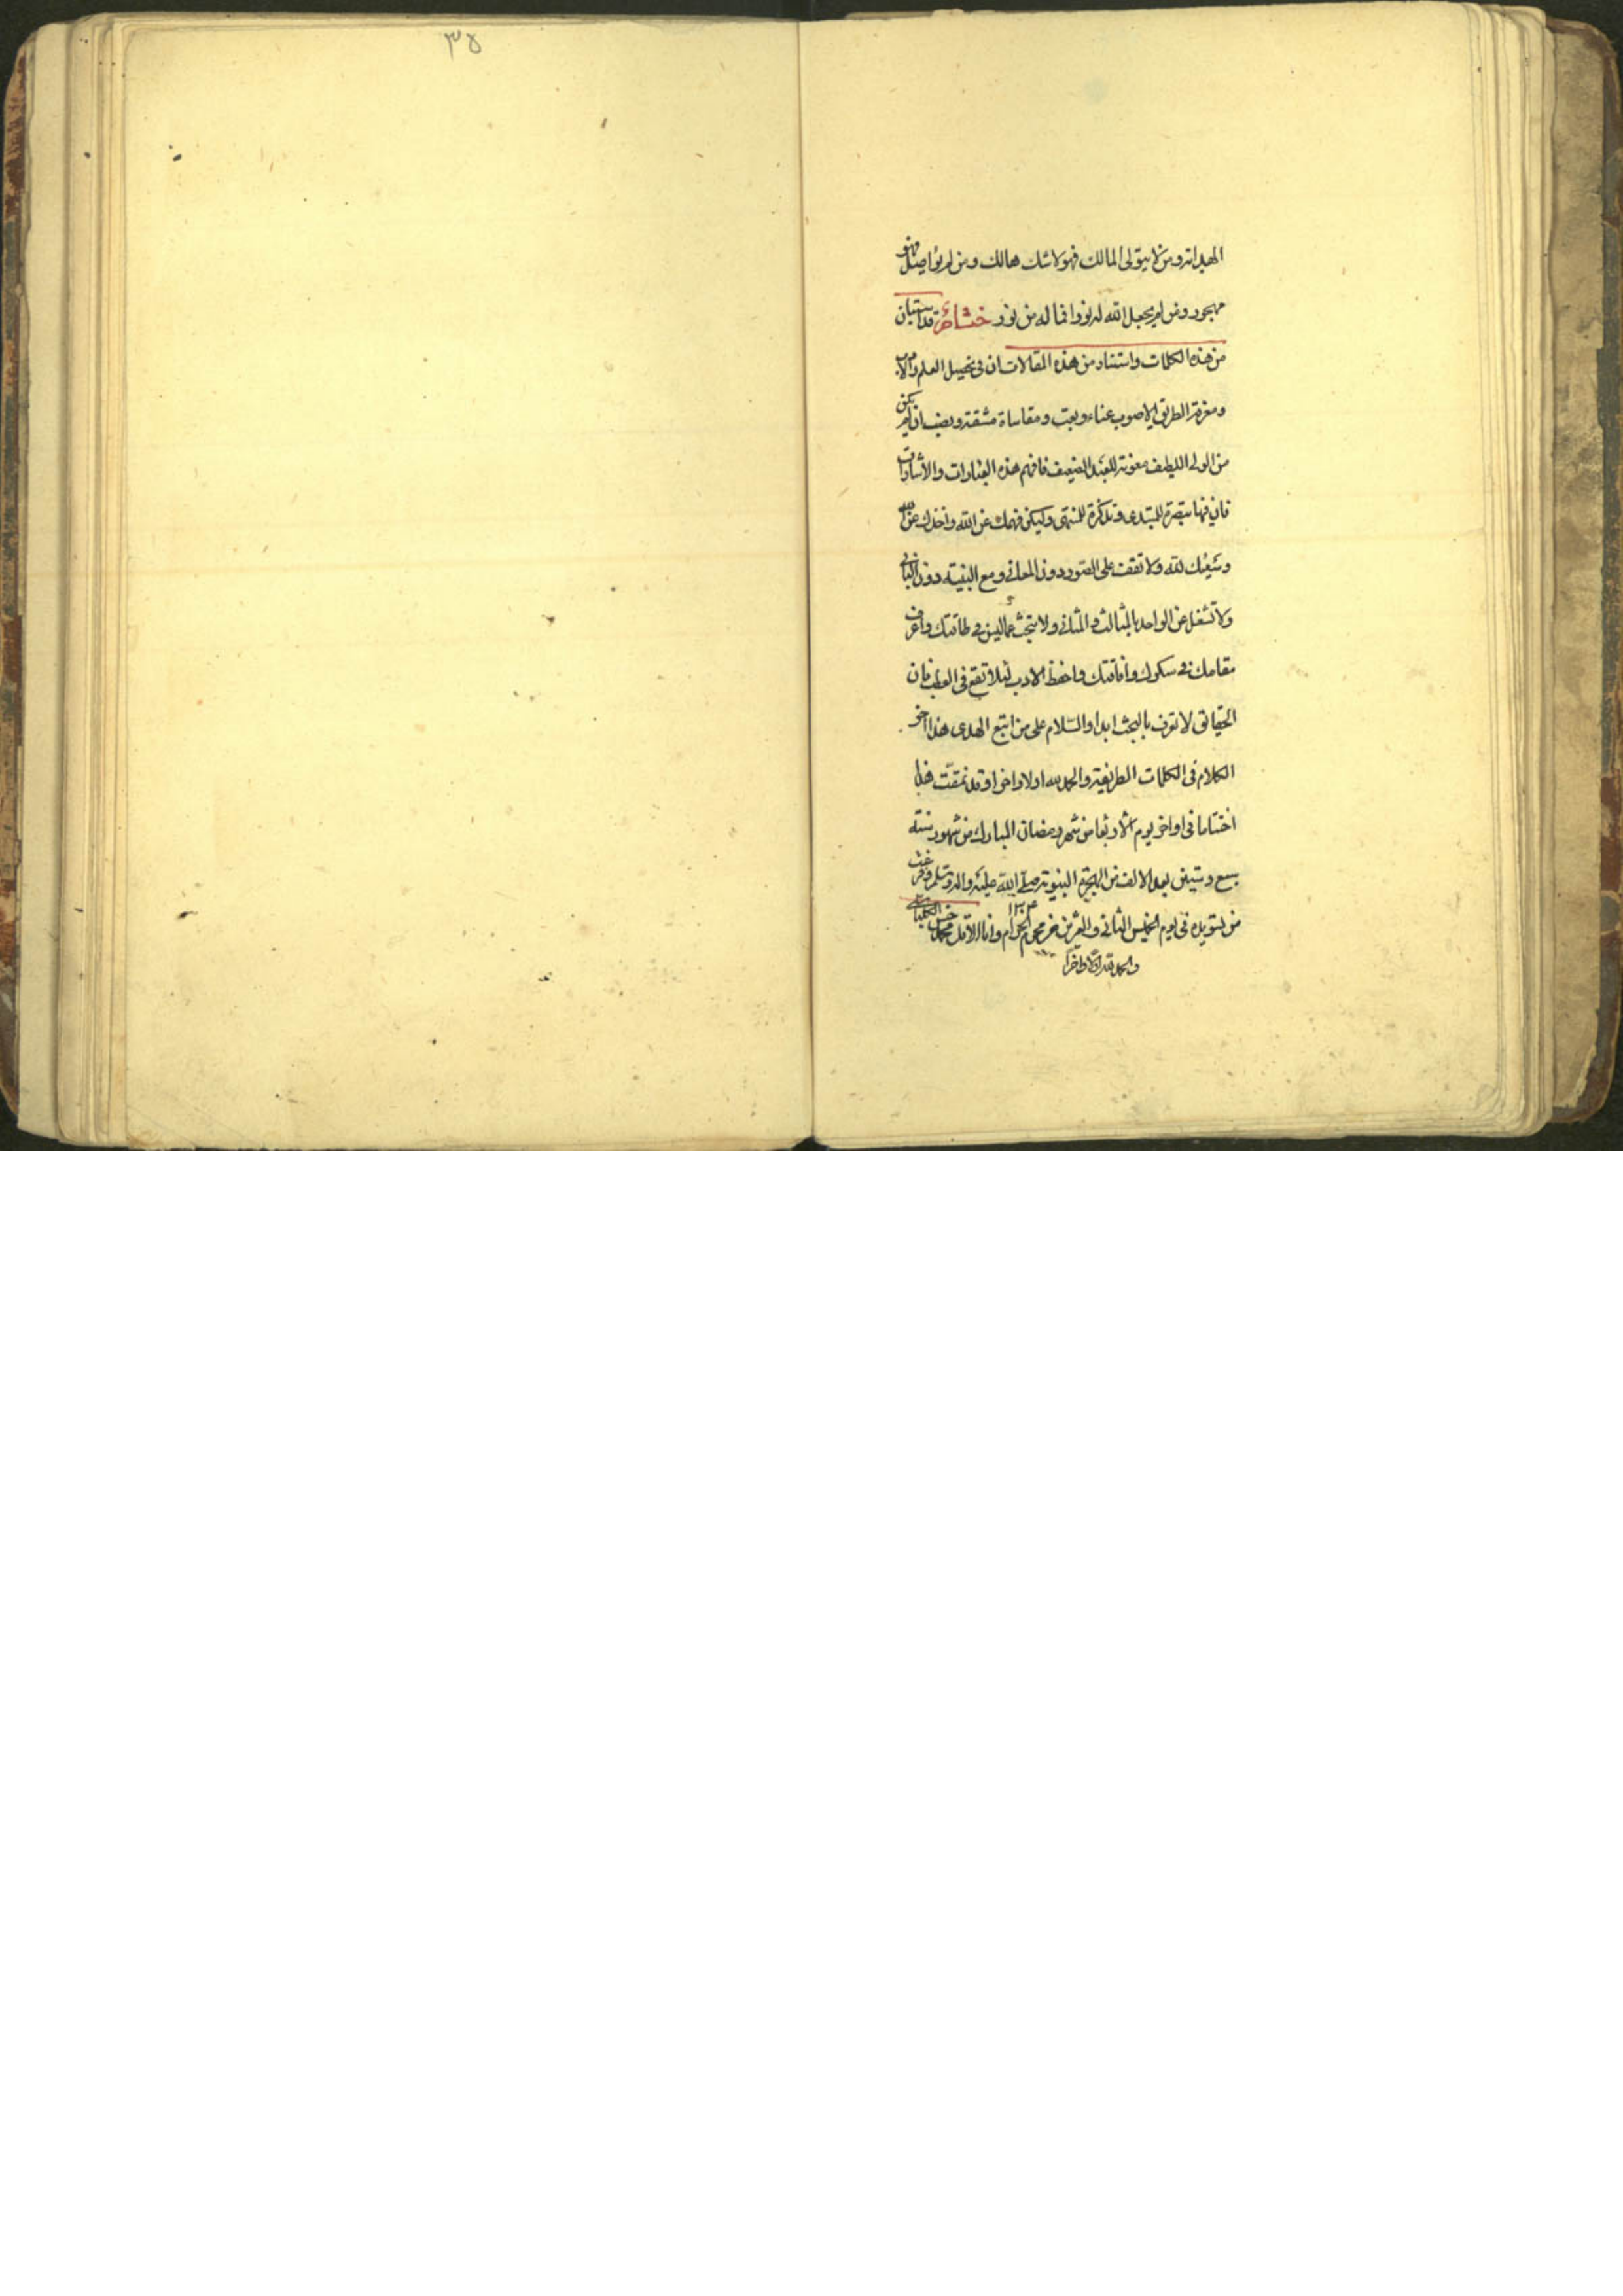 ٣٥
الهداية ومن لا يتولى المالك فهو لا شك هالك ومن لم يواصل فهو
مهجور ومن لم يجعل الله له نورا فما له من نور ختم قد استبان
من هذه الكلمات واستفاد من هذه المقالات ان فى تحصيل العلم والادب
ومعرفة الطريق الاصوب عناء وتعب ومقاساة مشقة ونصب ان لم يكن
من الولى اللطيف معونة للعبد الضعيف فافهم هذه العبارات والاشارات
فان فيها تبصرة للمبتدى وتذكرة للمنتهى وليكن فهمك عن الله واخذك عن الله
وسعيك لله ولا تقف على الصور دون المعانى ومع البنية دون البانى
ولا تشغل عن الواحد بالثالث والثانى ولا تبحث عما ليس فى طاقتك واعرف
مقامك فى سكرك وافاقتك واحفظ الادب لئلا تقع فى العطب فان
الحقائق لا تعرف بالبحث ابدا والسلام على من اتبع الهدى هذا اخر
الكلام فى الكلمات الطريفة والحمد لله اولا واخرا وقد نمقت هذا
اختتاما فى اواخر يوم الاربعا من شهر رمضان المبارك من شهور سنة
سبع وستين بعد الالف من الهجرة النبوية صلى الله عليه واله وسلم وفرغت
من تسويده فى يوم الخميس الثانى والعشرين من محرم الحرام وانا الاقل محمد
١٣٠٤
والحمد لله اولا واخرا